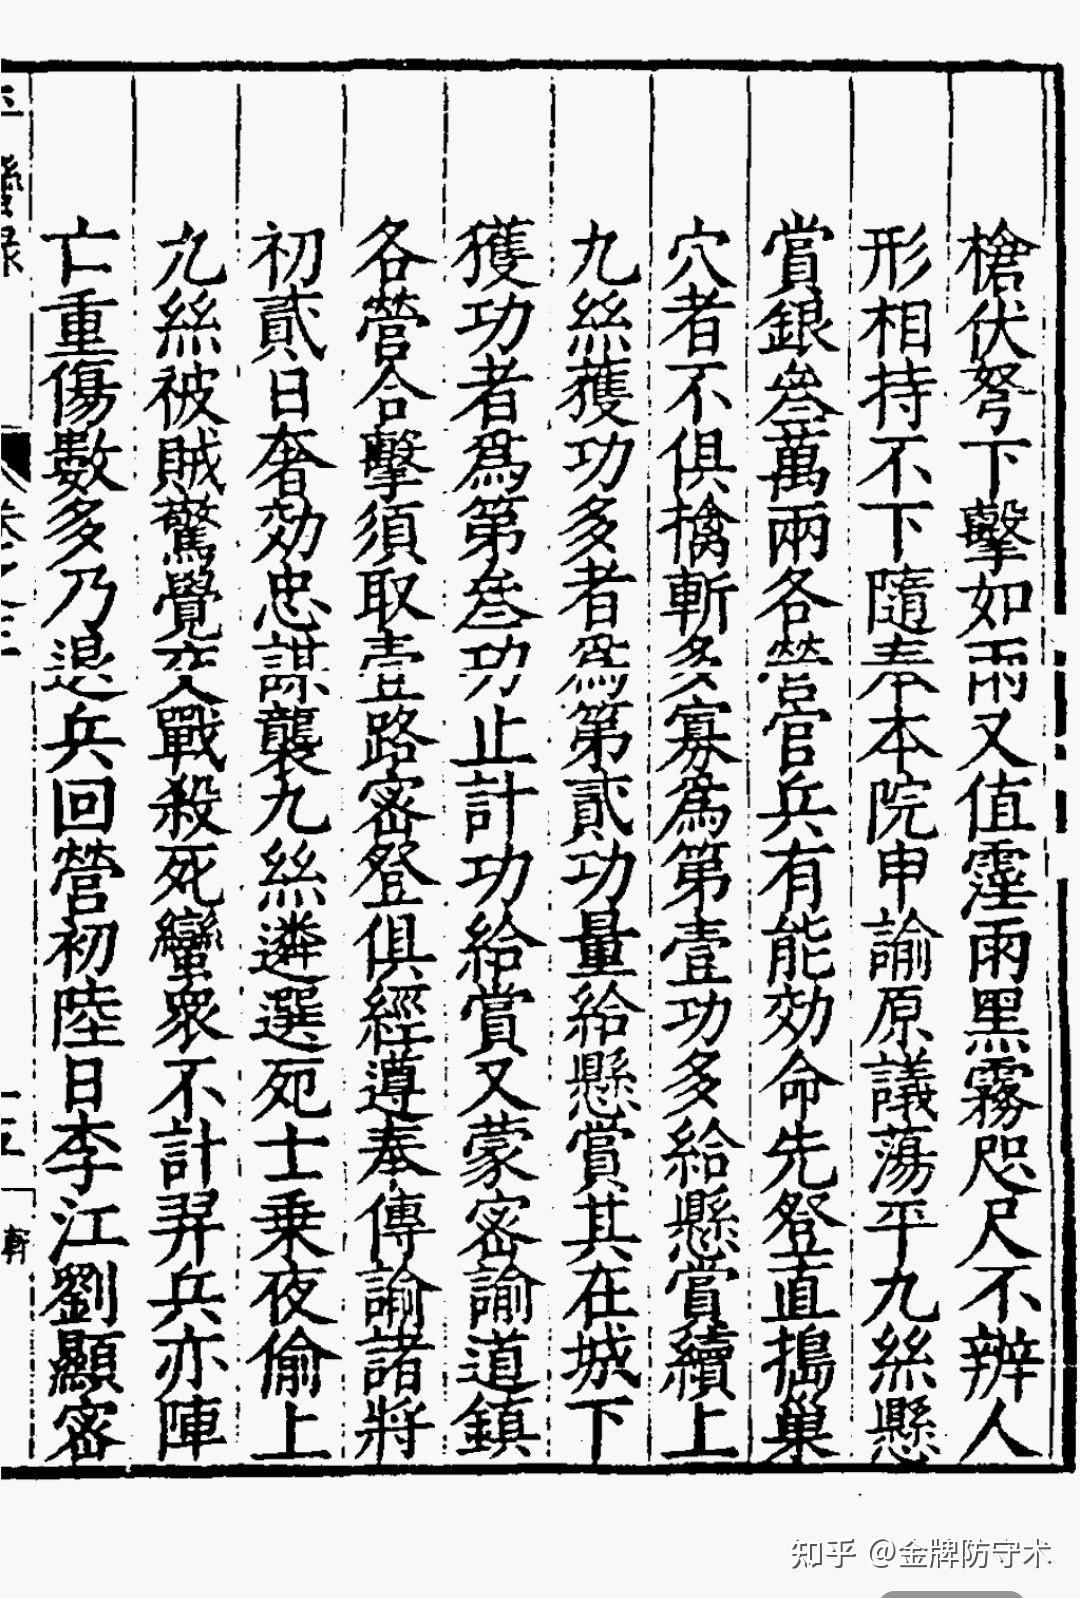 槍伏弩下擊如雨又值霪雨黑霧咫尺不辨人
形相持不下隨奉本院申諭原議蕩平九絲懸
賞銀叄萬兩各營官兵有能効命先登直搗巢
穴者不俱擒斬多寡為第壹功多給懸賞續上
九絲獲功多者為第貳功量給懸賞其在城下
獲功者為第叄功止計功給賞又蒙密諭道鎮
各營合擊須取壹路密登俱經遵奉傳諭諸將
初貳日奢効忠謀襲九絲遴選死士乘夜偷上
九絲被賊驚覺交戰殺死蠻衆不計羿兵亦陣
亡重傷數多乃退兵回營初陸日李江劉顯密
平蠻录
卷之三
十五
知乎 @金牌防守术